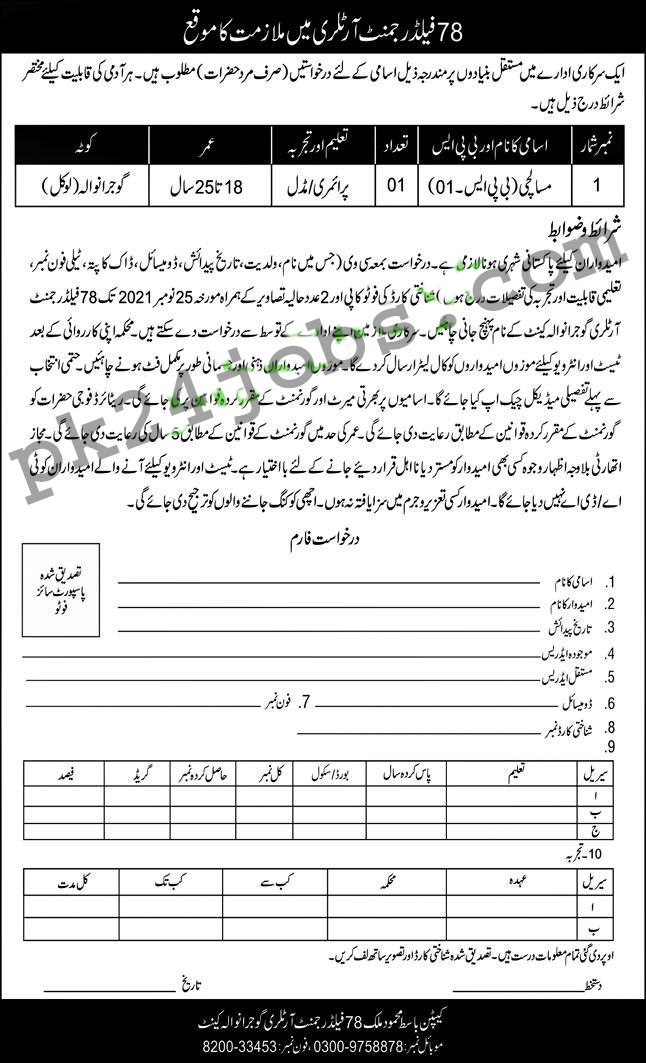 78 فیلڈ رجمنٹ آرٹلری میں ملازمت کا موقع
ایک سرکاری ادارے میں مستقل بنیادوں پر مندرجہ ذیل اسامی کے لئے درخواستیں (صرف مرد حضرات) مطلوب ہیں۔ ہر آدمی کی قابلیت کیلئے مختصر
شرائط درج ذیل ہیں۔
نمبر شمار اسامی کا نام اور بی پی ایس تعداد تعلیم اور تجربہ عمر کوٹہ
1 مسالچی (بی پی ایس۔01) 01 پرائمری/مڈل 18 تا 25 سال گوجرانوالہ (لوکل)
شرائط و ضوابط
امیدواران کیلئے پاکستانی شہری ہونا لازمی ہے۔ درخواست بمعہ سی وی (جس میں نام، ولدیت، تاریخ پیدائش، ڈومیسائل، ڈاک کا پتہ، ٹیلی فون نمبر،
تعلیمی قابلیت اور تجربہ کی تفصیلات درج ہوں) شناختی کارڈ کی فوٹو کاپی اور 2 عدد حالیہ تصاویر کے ہمراہ مورخہ 25 نومبر 2021 تک 78 فیلڈ رجمنٹ
آرٹلری گوجرانوالہ کینٹ کے نام پہنچ جانی چاہئیں۔ سرکاری ملازمین اپنے ادارے کے توسط سے درخواست دے سکتے ہیں۔ محکمہ اپنی کارروائی کے بعد
ٹیسٹ اور انٹرویو کیلئے موزوں امیدواروں کو کال لیٹر ارسال کر دے گا۔ موزوں امیدواران ذہنی اور جسمانی طور پر مکمل فٹ ہونے چاہئیں۔ حتمی انتخاب
سے پہلے تفصیلی میڈیکل چیک اپ کیا جائے گا۔ اسامیوں پر بھرتی میرٹ اور گورنمنٹ کے مقرر کردہ قوانین پر کی جائے گی۔ ریٹائرڈ فوجی حضرات کو
گورنمنٹ کے مقرر کردہ قوانین کے مطابق رعایت دی جائے گی۔ عمر کی حد میں گورنمنٹ کے قوانین کے مطابق 5 سال کی رعایت دی جائے گی۔ مجاز
اتھارٹی بلاوجہ اظہار وجوہ کسی بھی امیدوار کو مسترد یا نااہل قرار دیئے جانے کے لئے بااختیار ہے۔ ٹیسٹ اور انٹرویو کیلئے آنے والے امیدواران کو ٹی
اے/ڈی اے نہیں دیا جائے گا۔ امیدوار کسی تعزیر و جرم میں سزا یافتہ نہ ہوں۔ اچھی کوکنگ جاننے والوں کو ترجیح دی جائے گی۔
pk24jobs.com
درخواست فارم
تصدیق شدہ
پاسپورٹ سائز
فوٹو
1. اسامی کا نام
2. امیدوار کا نام
3. تاریخ پیدائش
4. موجودہ ایڈریس
5. مستقل ایڈریس
6. ڈومیسائل 7. فون نمبر
8. شناختی کارڈ نمبر
9.
سیریل تعلیم پاس کردہ سال بورڈ/سکول کل نمبر حاصل کردہ نمبر گریڈ فیصد
ا
ب
ج
10۔ تجربہ
سیریل عہدہ محکمہ کب سے کب تک کل مدت
ا
ب
اوپر دی گئی تمام معلومات درست ہیں۔ تصدیق شدہ شناختی کارڈ اور تصویر ساتھ لف کریں۔
دستخط تاریخ
کیپٹن باسط محمود ملک 78 فیلڈ رجمنٹ آرٹلری گوجرانوالہ کینٹ
موبائل نمبر: 0300-9758878، فون نمبر: 8200-33453